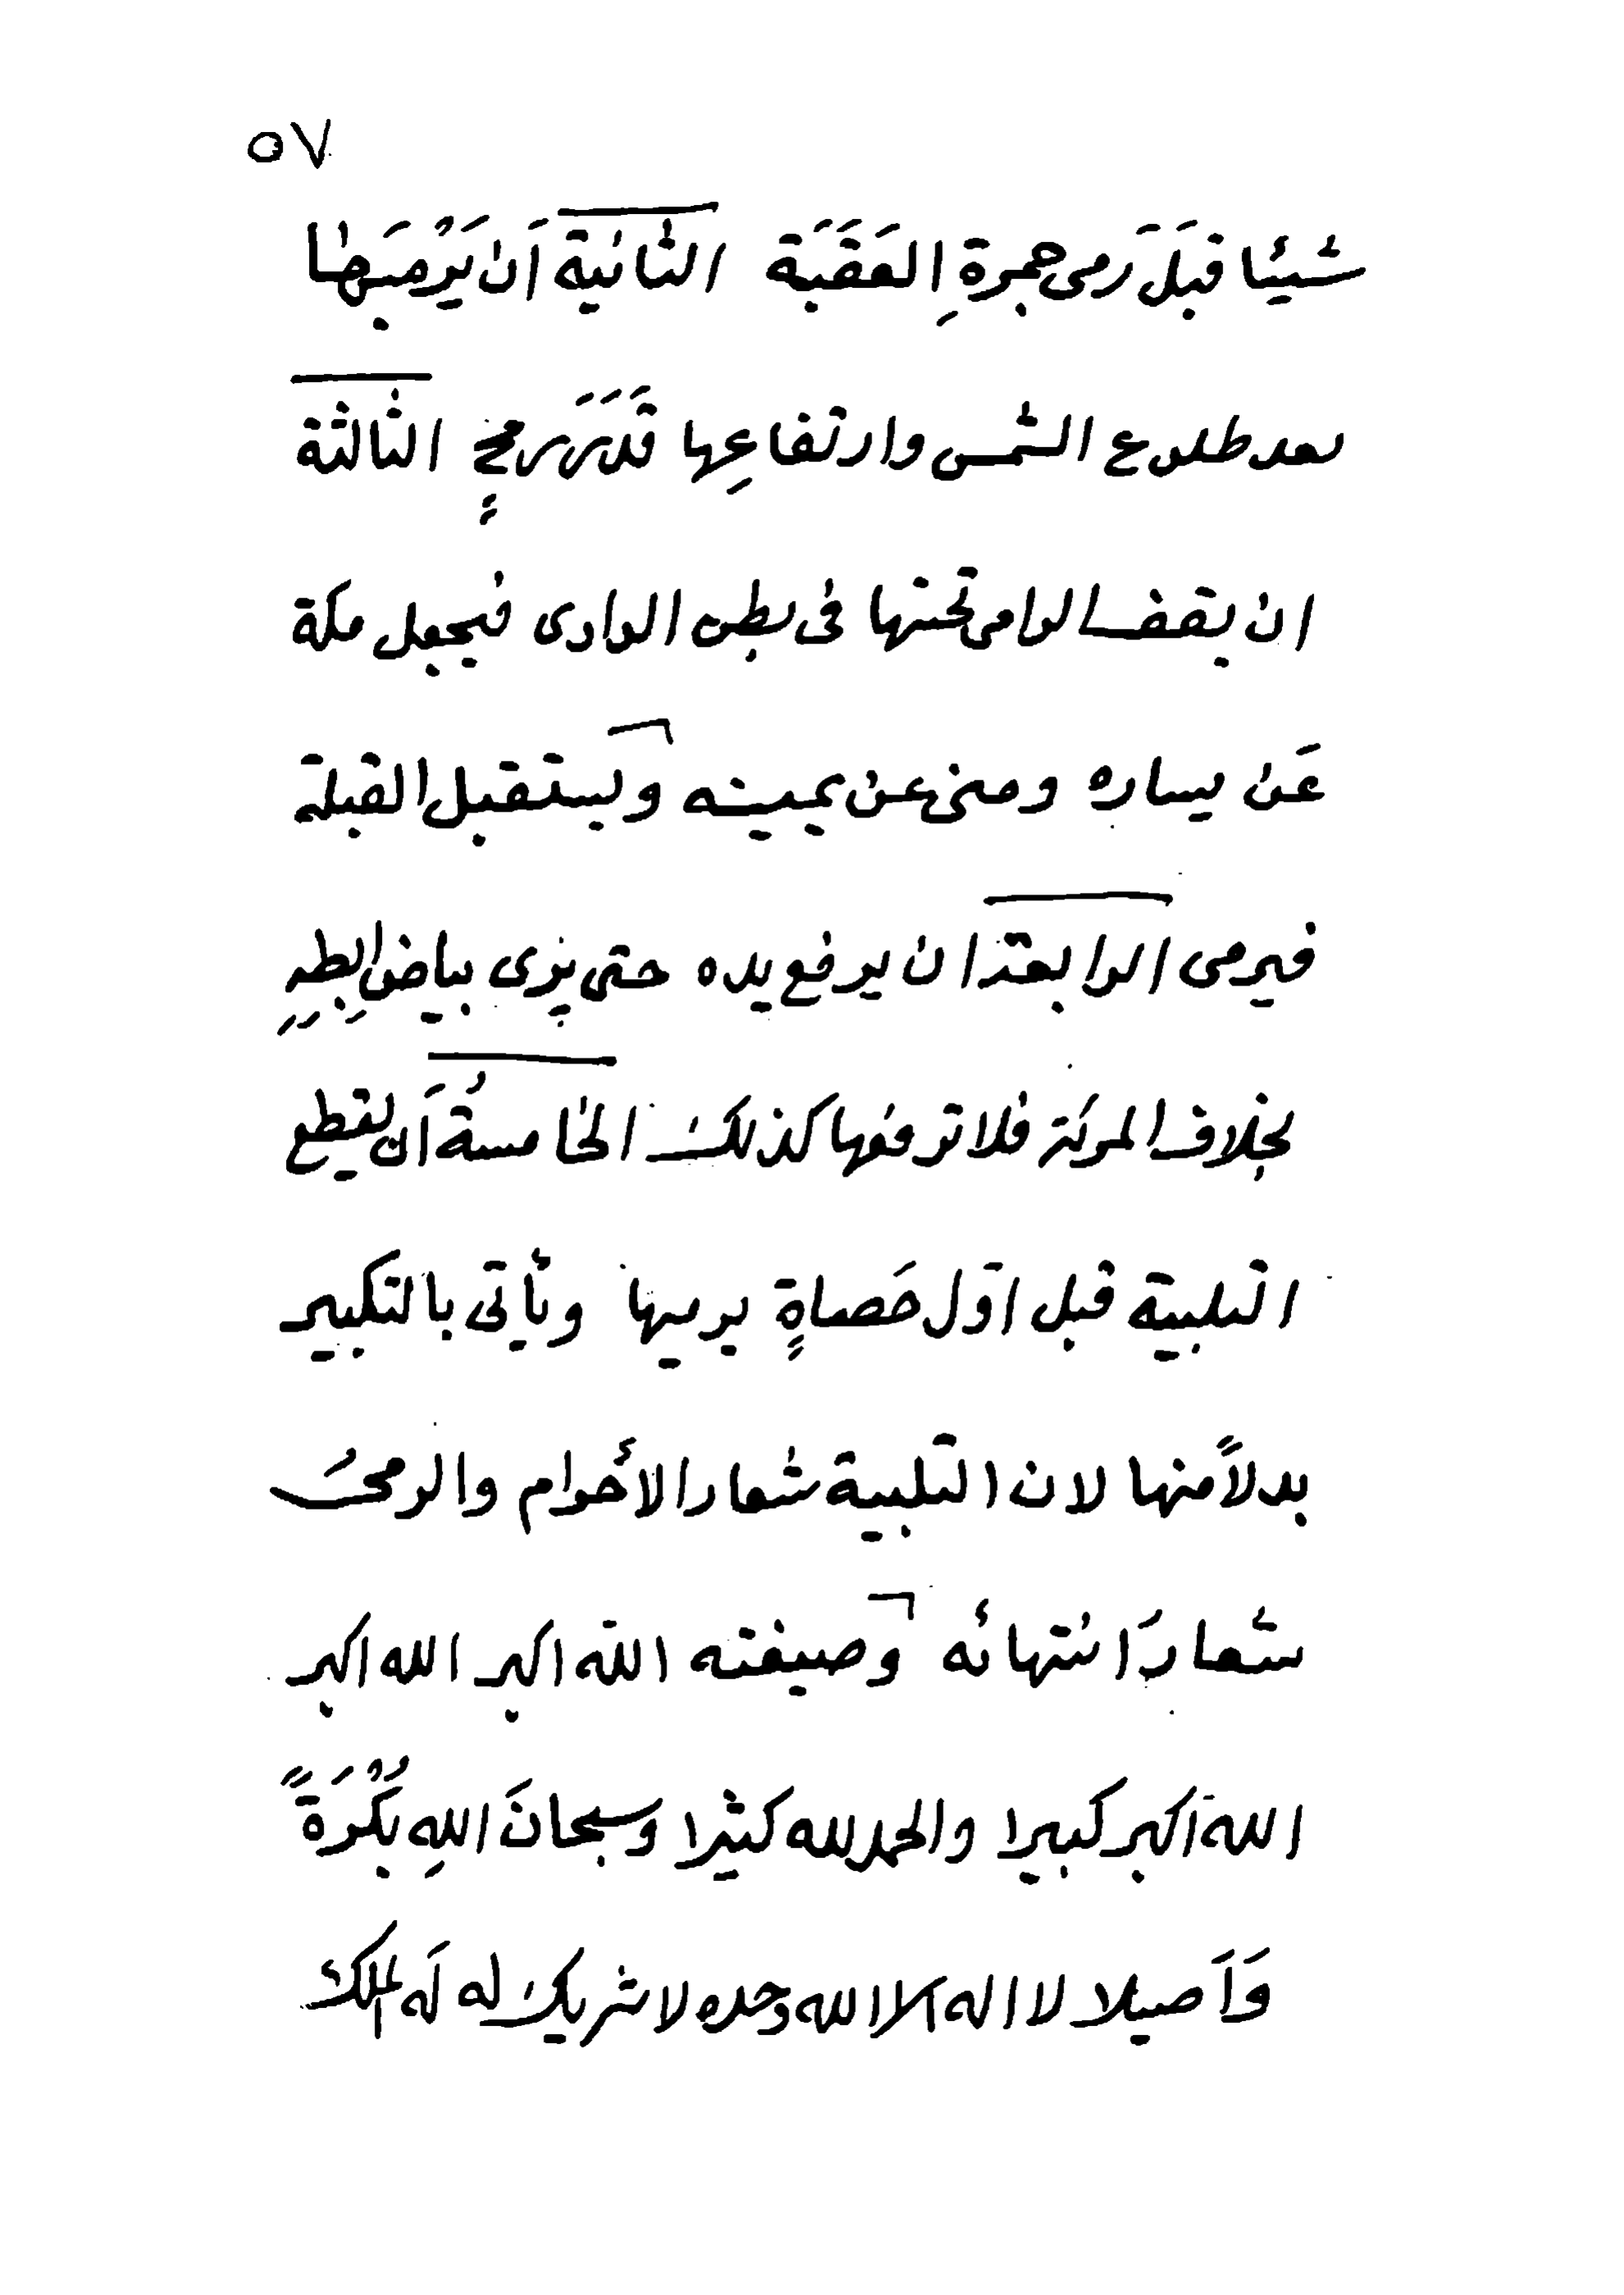 ٥٧
شيئا قبلَ رَمى جمرةِ العَقَبَة الثانية اَن يَرْميَها
بعد طلوع الشمس وارتفاعِها قَدَرَ رمحٍ الثالثة
ان يقف الرامى تحتها فى بطن الوادى فيجعل مكة
عَن يساره ومنى عن يمينه ويستقبل القبلة
فيرمى الرابعة ان يرفع يده حتى يرى بياض اِبِطِهِ
بخلاف المرئة فلا ترفعها كذلك الخامسةُ اَن يقطع
التلبية قبل اوّل حَصاةٍ يرميها ويأتى بالتكبير
بدلاً منها لان التلبية شعار الأحرام والرمىُ
شعارَ انتهائه وصيغته الله اكبر الله اكبر
الله اكبر كبيرا والحمد لله كثيرا وسبحانَ اللهِ بُكْرَةً
وَاَصيلا لا اله الا الله وحده لا شريك له لَه الملك